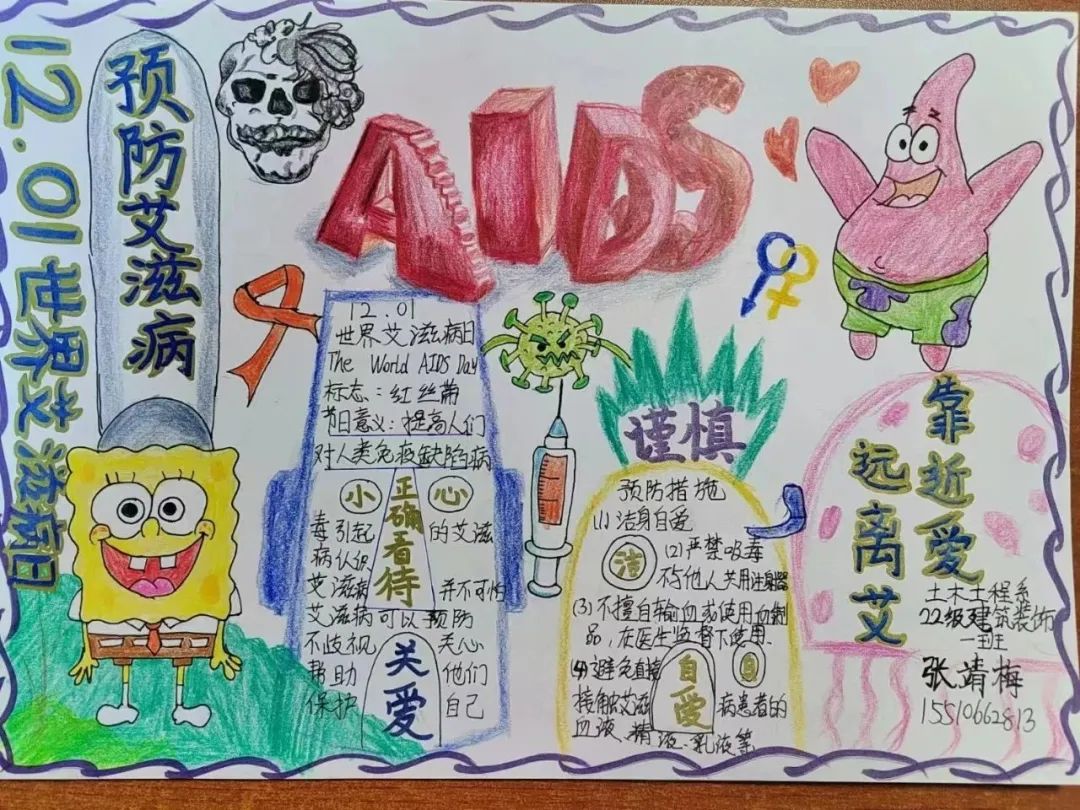 12.01世界艾滋病日
预防艾滋病
AIDS
12.01
世界艾滋病日
The World AIDS Day
标志：红丝带
节日意义：提高人们
对人类免疫缺陷病
小 心
正确看待
毒引起 的艾滋
病认识
艾滋病 并不可怕
艾滋病可以预防
不歧视 关心
帮助 他们
保护 自己
关爱
谨慎
预防措施
(1) 洁身自爱
洁
(2) 严禁吸毒
不与他人共用注射器
(3) 不擅自输血或使用血制
品，在医生监督下使用.
(4) 避免直接
接触艾滋 病患者的
血液、精液、乳液等
自爱
靠近爱
远离艾
土木工程系
22级建筑装饰
一班
张靖梅
15510662813